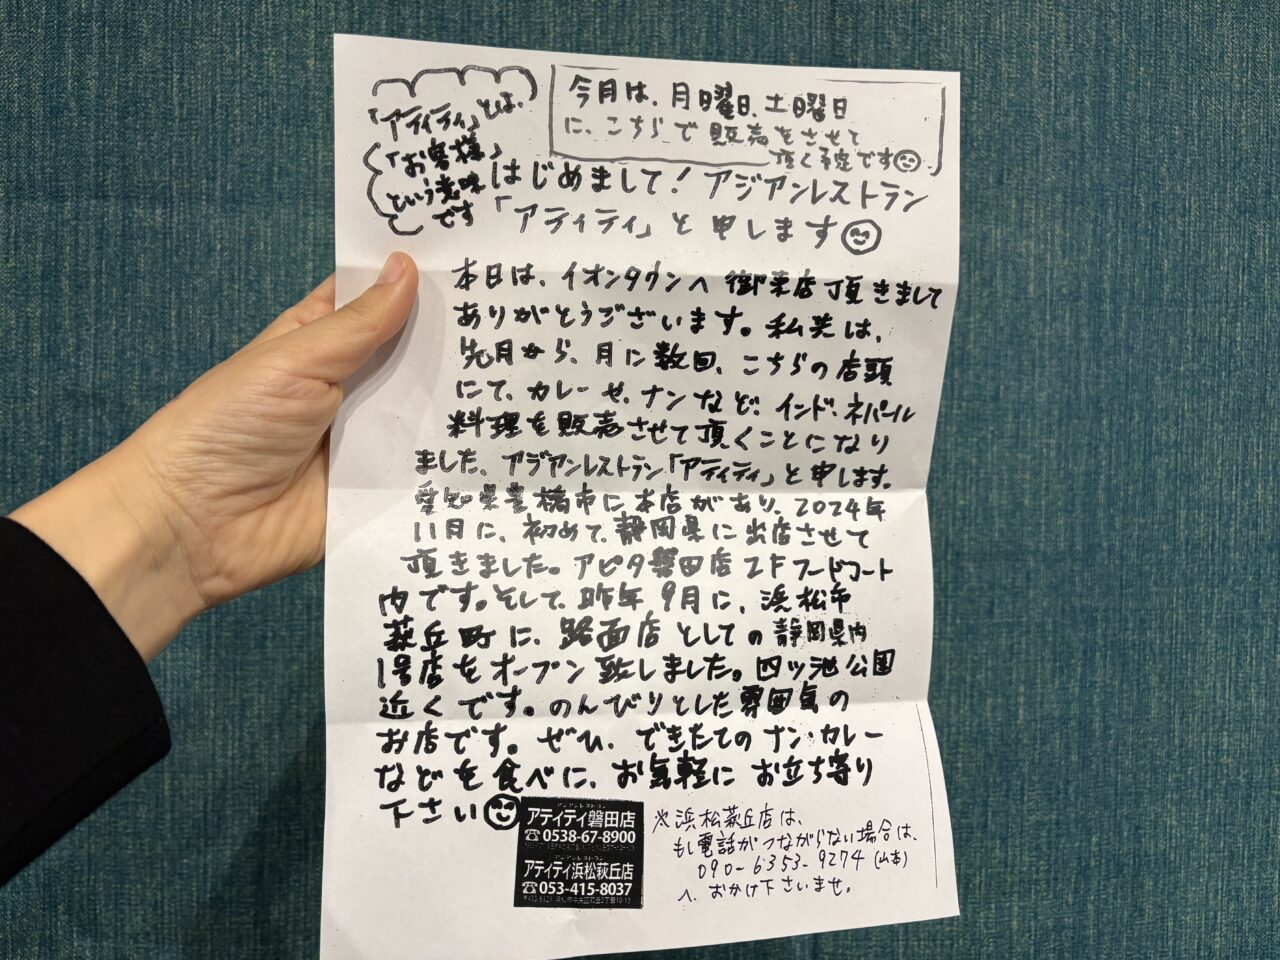 「アティティ」とは、
「お客様」
という意味
です
今月は、月曜日、土曜日
に、こちらで販売をさせて
頂く予定です
はじめまして！アジアンレストラン
「アティティ」と申します
本日は、イオンタウンへ御来店頂きまして
ありがとうございます。私共は、
先月から、月に数回、こちらの店頭
にて、カレーや、ナンなど、インド・ネパール
料理を販売させて頂くことになり
ました、アジアンレストラン「アティティ」と申します。
愛知県豊橋市に本店があり、2024年
11月に、初めて、静岡県に出店させて
頂きました。アピタ磐田店2Fフードコート
内です。そして、昨年9月に、浜松市
萩丘町に、路面店としての静岡県内
1号店をオープン致しました。四ツ池公園
近くです。のんびりとした雰囲気の
お店です。ぜひ、できたてのナン・カレー
などを食べに、お気軽にお立ち寄り
下さい
アジアンレストラン
アティティ磐田店
☎0538-67-8900
アジアンレストラン
アティティ浜松萩丘店
☎053-415-8037
※浜松萩丘店は、
もし電話がつながらない場合は、
090-6353-9274（山本）
へ、おかけ下さいませ。